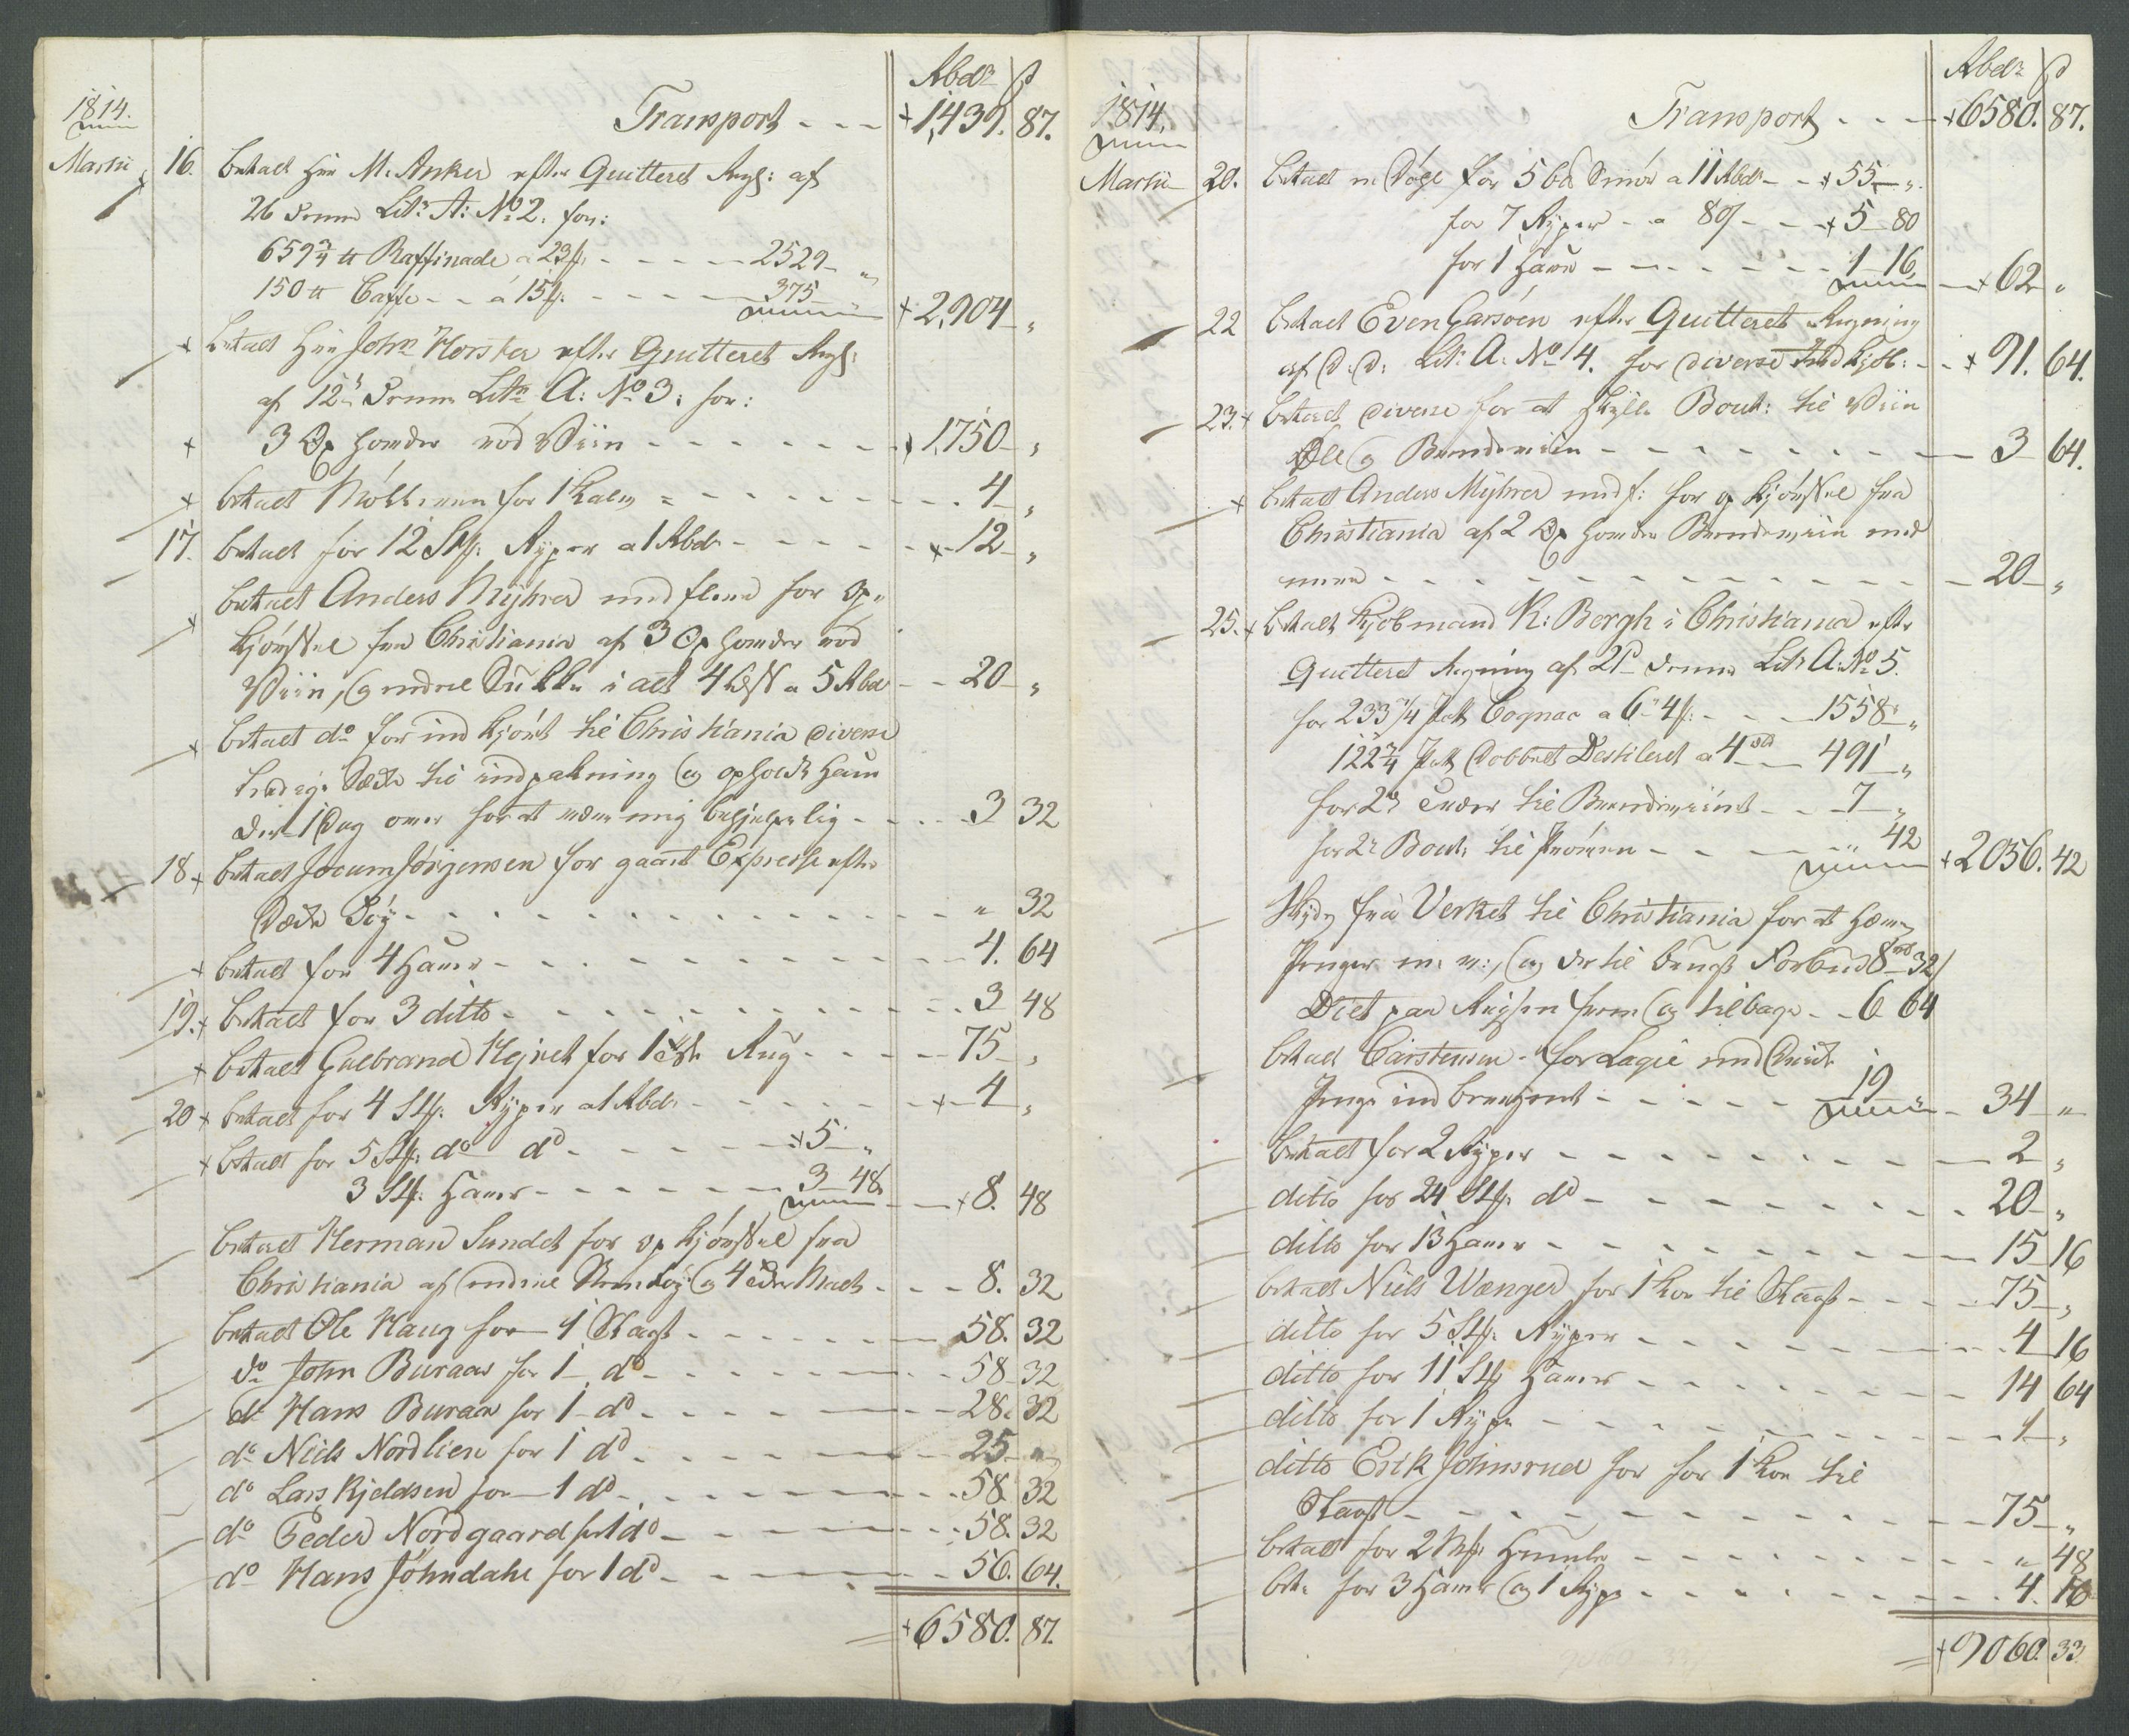 Rbdr ß
1814.
Transport - - - + 1,439. 87.
Martii 16. betalt Hr: M. Anker efter Quitteret Regl: af
26 Denne Litr A: No 2. for:
659 3/4 tt Raffinade a 23ß - - - - 2529 - "
150 tt Caffe - - á 15ß - - - - 375 - " + 2,904 - "
+ betalt Hr: John Horster efter Quitteret Regl:
af 12te Denne Litr A: No 3: for:
+ 3 Oxhoveder rød Viin - - - - - - + 1,750 - "
+ betalt Mölleren for 1 Kalv - - - - - - 4 - "
17. betalt for 12 Stk: Ryper a 1 Rbdr - - - - + 12 - "
+ betalt Anders Myhrer med flere for op-
kjørsel fra Christiania af 3 Oxhoveder rød
Viin, og endeel Sukker i alt 4 Læs a 5 Rbd - - 20 - "
+ betalt do for indkjørt til Christiania diverse
ledige Sække til indpakning og opholdt ham
der 1 Dag over for at være mig behjelpelig - - - 3 32
18 + betalt Jocum Jörgensen for gaaet Expresse efter
Dæks Töy - - - - - - - " 32
+ betalt for 4 Harer - - - - - - 4. 64
19. + betalt for 3 ditto - - - - - - 3 48
+ betalt Gulbrand Hejret for 1 Rug - - - - 75 - "
20 + betalt for 4 Stk: Ryper a 1 Rbdr - - - - + 4 - "
+ betalt for 5 Stk: do do - - - - + 5 - "
3 Stk: Harer - - - - - 3 48 - + 8. 48
betalt Herman Sundet for opkjørsel fra
Christiania af endeel og 4 - - - 8. 32
betalt Ole Haug for 1 Slagt - - - - - 58. 32
do John Buraas for 1 do - - - - - 58. 32
do Hans Buraas for 1 do - - - - - 28. 32
do Niels Nordlien for 1 do - - - - 25 - "
do Lars Kjeldsen for 1 do - - - - 58. 32
do Peder Nordgaard for 1 do - - - - 58. 32
do Hans Johndahl for 1 do - - - - 56. 64.
+ 6580. 87.
Rbdr ß
1814.
Transport - - - + 6580. 87.
Martii 20. betalt en Döle for 5 bd Smör a 11 Rbdr - - + 55 - "
for 7 Ryper - a 80ß - - + 5 - 80
for 1 Hare - - - - - 1 16 - + 62 "
22 betalt Even Garsöen efter Quitteret Regning
af D: D: Litr A. No 4. for diverse Indkjöb: - - + 91. 64.
23. + betalt diverse for at skylle Bout: til Viin
Öll og Brændeviin - - - - - - 3 64.
+ betalt Anders Myhrer med f: for opkjørsel fra
Christiania af 2 Oxhoveder Brændeviin med
mere - - - - - - - 20 - "
25. + betalt Kjöbmand K: Bergh i Christiania efter
Quitteret Regning af 21de Denne Litr A: No 5.
for 233 3/4 Pott Cognac a 6 - 4ß: - - - 1558 - "
122 3/4 Pott Dobbelt Destileret a 4 rd - 491 - "
for 2de til Brændeviinet - - 7 - "
for 2de Bout: til Pröven - - - - " 42 + 2056. 42
Skyds fra Verket til Christiania for at hæve
Penger m: v:, og der til brugt Forbud 8 rd 32ß
Diet paa Reysen frem og tilbage - - 6 64
betalt Carstensen for Logie med
Penge indberegnet - - - - 19 - 34 - "
betalt for 2 Ryper - - - - - - 2 - "
ditto for 24 Stk: do - - - - - 20 - "
ditto for 13 Harer - - - - - 15 16
betalt Niels Wænger for 1 Koe til Slagt - - - 75 - "
ditto for 5 Stk: Ryper - - - - - 4 16
ditto for 11 Stk Harer - - - - - 14 64
ditto for 1 Rype - - - - - 1 - "
ditto Erik Johnsrud for for 1 Koe til
Slagt - - - - - - - 75 - "
betalt for 2 Humle - - - - - " 48
bet: for 3 Harer og 1 Rype - - - - 4. 16
+ 9060. 33.